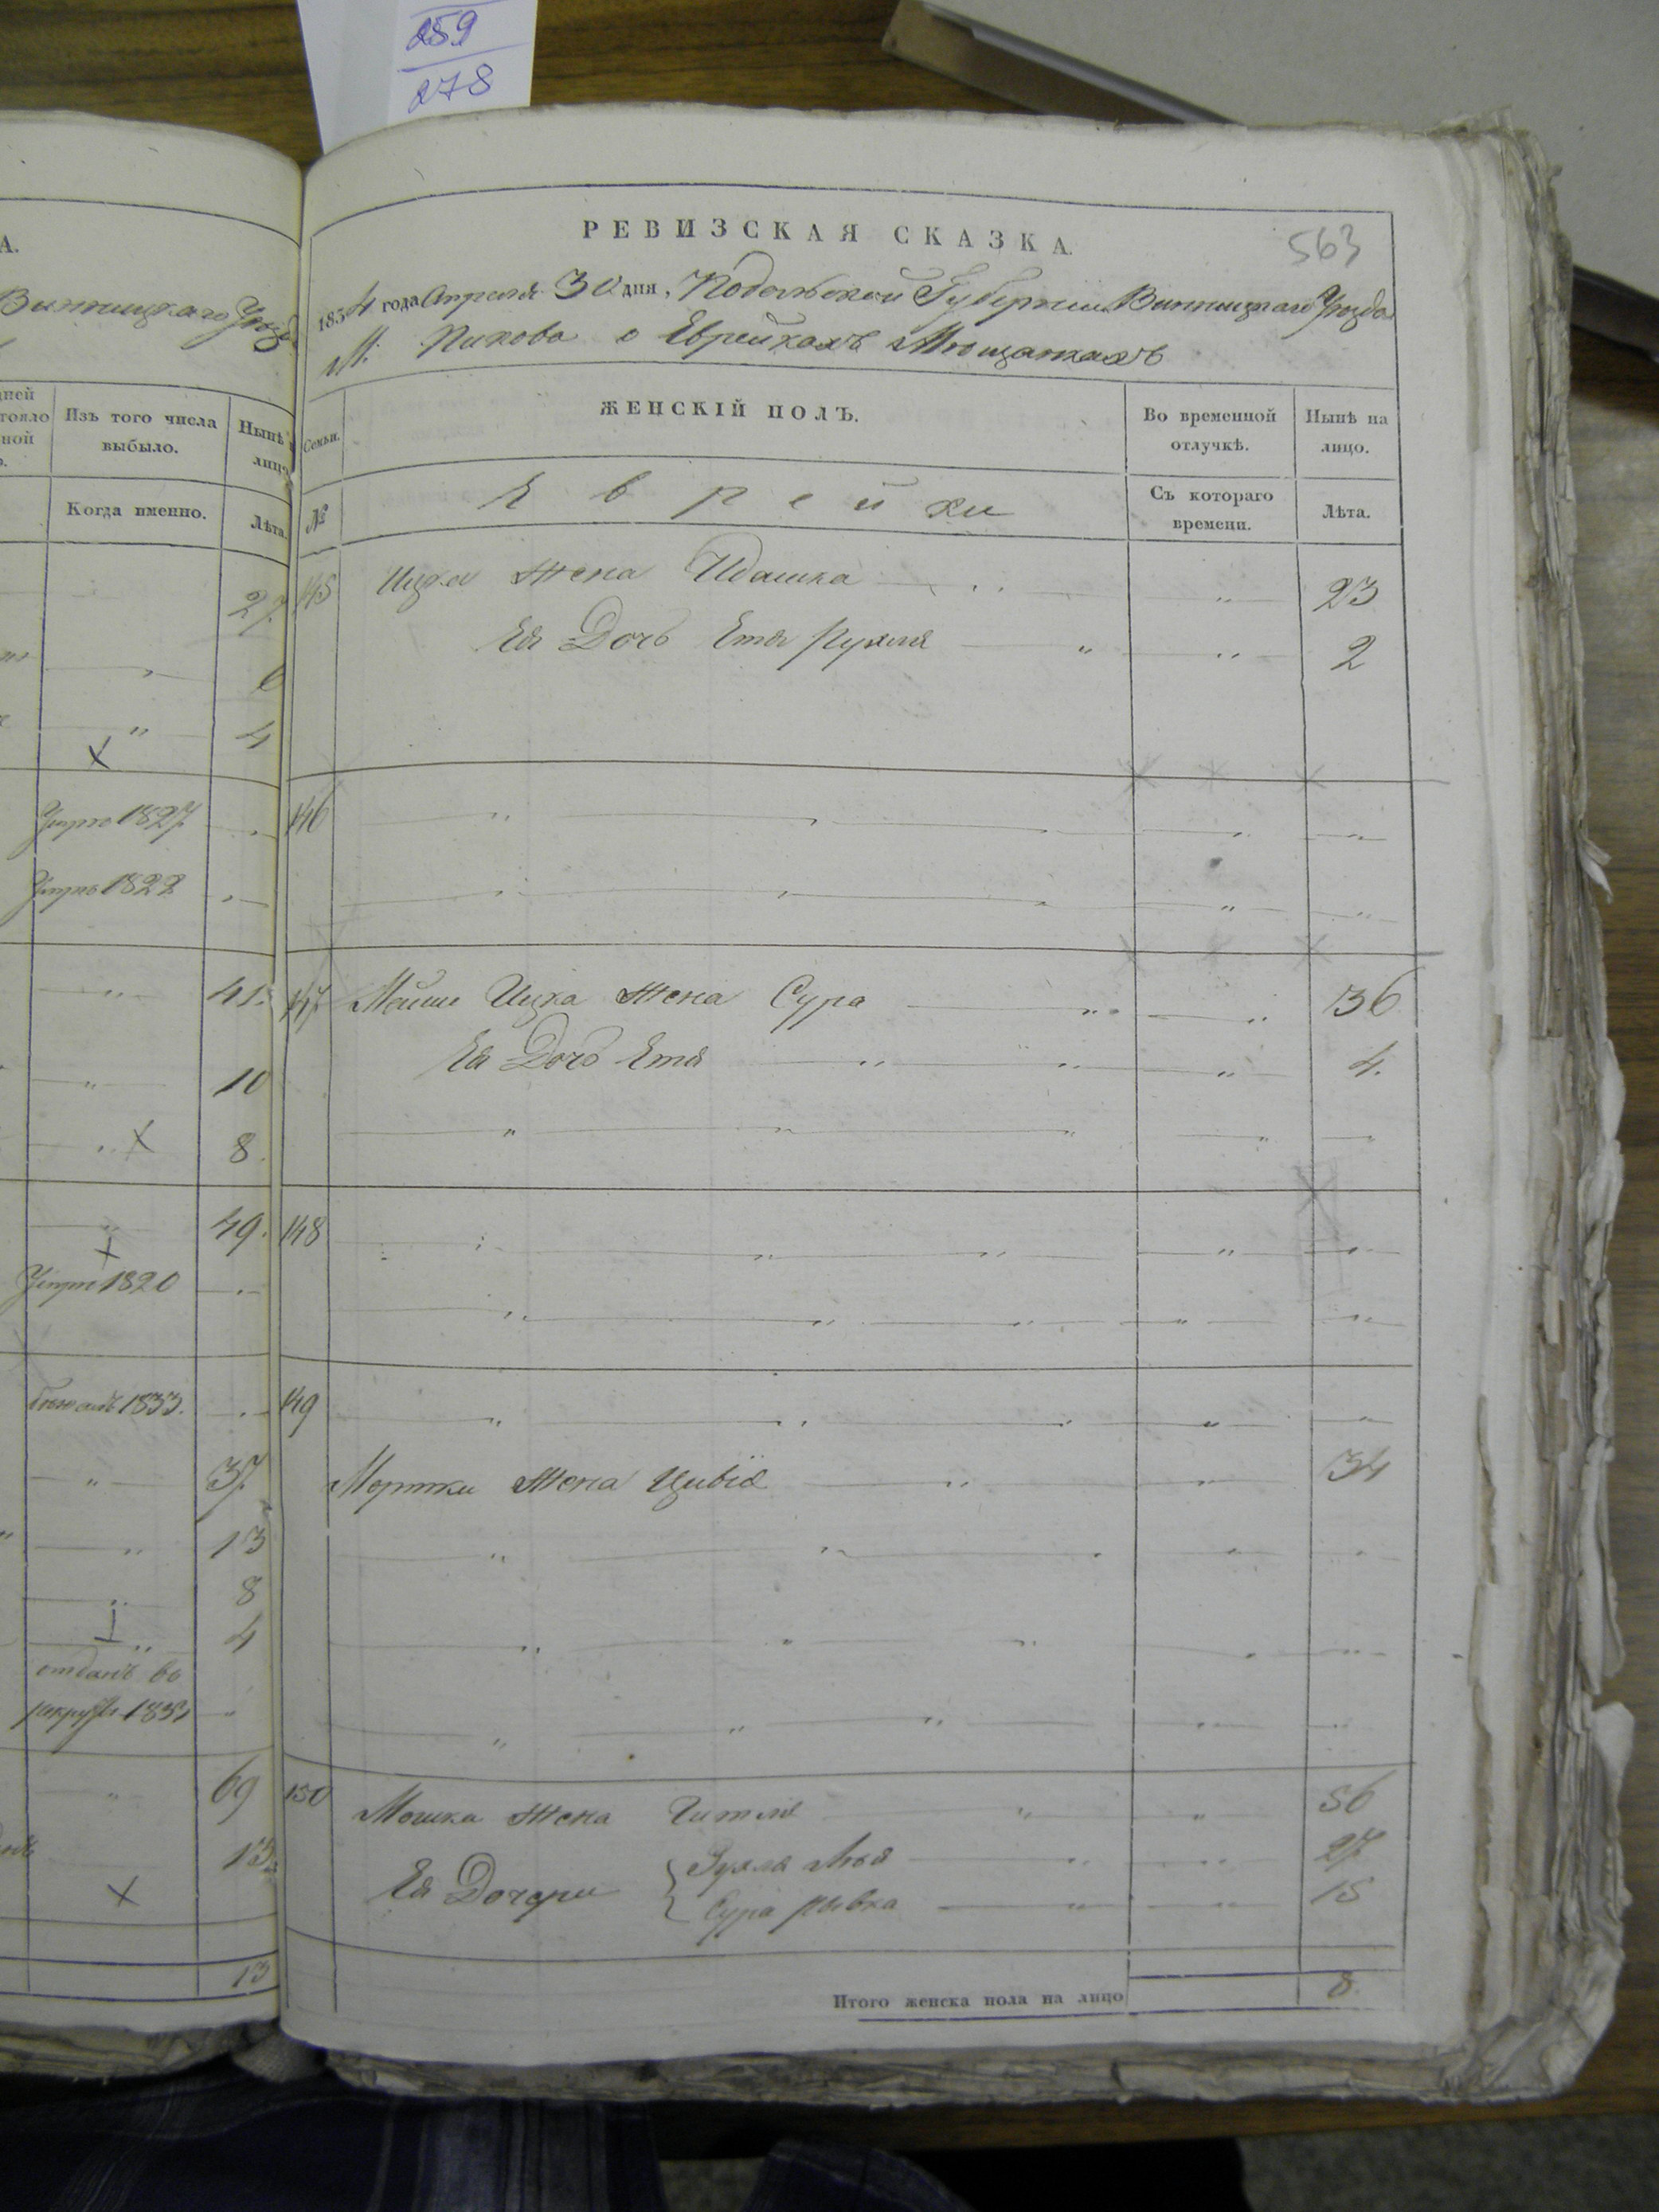 259
278
А.
Винницкаго Уѣзда
дней
тояло
ной
Изъ того числа
выбыло.
Нынѣ
лицо
Когда именно.
Лѣта.
27
6
4
X
Умре 1827
Умре 1822
41
10
X 8
49
X
Умре 1820
1833
37
13
8
4
отданъ во
рекруты
69
13
X
13
РЕВИЗСКАЯ СКАЗКА.
563
1834 года Апреля 30 дня, Подольской Губернии Винницкаго Уѣзда
М. Пикова о Еврейкахъ Мѣщанкахъ
Семьи.
ЖЕНСКІЙ ПОЛЪ.
Во временной
отлучкѣ.
Нынѣ на
лицо.
№
Еврейки
Съ котораго
времени.
Лѣта.
145 Ицка Жена Идашка 23
Ея Дочь Етя Рухля 2
146
147 Мойше Ицка Жена Сура 36
Ея Дочь Етя 4.
148
149
Мортки Жена Цивія 34
150 Мошка Жена Гитля 56
Ея Дочери { Рухля Лея 27
Сура Рывка 15
Итого женска пола на лицо 8.